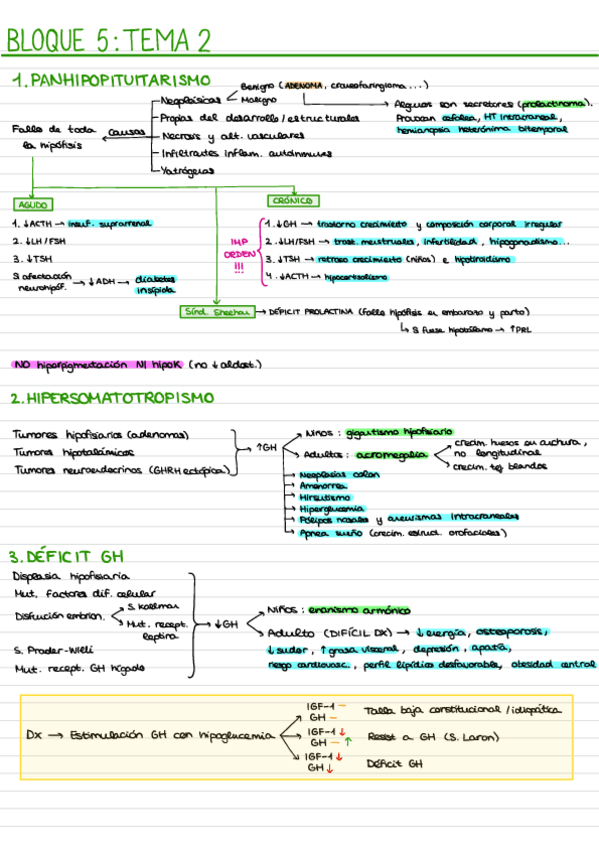 BLOQUE 5: TEMA 2
1. PANHIPOPITUITARISMO
Fallo de toda la hipófisis
Causas
Neoplásicas
Benigno (ADENOMA, craneofaringioma...)
Maligno
Algunos son secretores (prolactinoma).
Provocan cefalea, HT intracraneal,
hemianopsia heterónima bitemporal
Propias del desarrollo/estructurales
Necrosis y alt. vasculares
Infiltrantes inflam. autoinmunes
Yatrógenas
AGUDO
1. ↓ACTH → insuf. suprarrenal
2. ↓LH/FSH
3. ↓TSH
Si afectación neurohipóf. → ↓ADH → diabetes insípida
IMP ORDEN !!!
CRÓNICO
1. ↓GH → trastorno crecimiento y composición corporal irregular
2. ↓LH/FSH → trast. menstruales, infertilidad, hipogonadismo...
3. ↓TSH → retraso crecimiento (niños) e hipotiroidismo
4. ↓ACTH → hipocortisolismo
Sínd. Sheehan → DÉFICIT PROLACTINA (fallo hipófisis en embarazo y parto)
Si fuese hipotálamo → ↑PRL
NO hiperpigmentación NI hipoK (no ↓aldost.)
2. HIPERSOMATOTROPISMO
Tumores hipofisiarios (adenomas)
Tumores hipotalámicos
Tumores neuroendocrinos (GHRH ectópica)
→ ↑GH
Niños: gigantismo hipofisiario
Adultos: acromegalia
crecim. huesos en anchura, no longitudinal
crecim. tej blandos
Neoplasias colon
Amenorrea
Hirsutismo
Hiperglucemia
Pólipos nasales y aneurismas intracraneales
Apnea sueño (crecim. estruct. orofaciales)
3. DÉFICIT GH
Displasia hipofisiaria
Mut. factores dif. celular
Disfunción embrion.
S. Kallman
Mut. recept. leptina
S. Prader-Willi
Mut. recept. GH hígado
→ ↓GH
Niños: enanismo armónico
Adulto (DIFÍCIL DX) → ↓energía, osteoporosis,
↓sudor, ↑grasa visceral, depresión, apatía,
riesgo cardiovasc., perfil lipídico desfavorable, obesidad central
Dx → Estimulación GH con hipoglucemia
IGF-1 –
GH –
Talla baja constitucional/idiopática
IGF-1 ↓
GH – ↑
Resist a GH (S. Laron)
IGF-1 ↓
GH ↓
Déficit GH